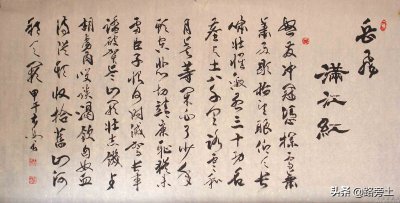 岳飞
满江红
怒发冲冠凭栏处潇
雨歇抬望眼仰天长
啸壮怀激烈三十功名
尘与土八千里路云和
月莫等闲白了少年
头空悲切靖康耻犹未
雪臣子恨何时灭驾长车
踏破贺兰山缺壮志饥餐
胡虏肉笑谈渴饮匈奴血
待从头收拾旧山河
朝天阙 甲午
头条 @路旁土